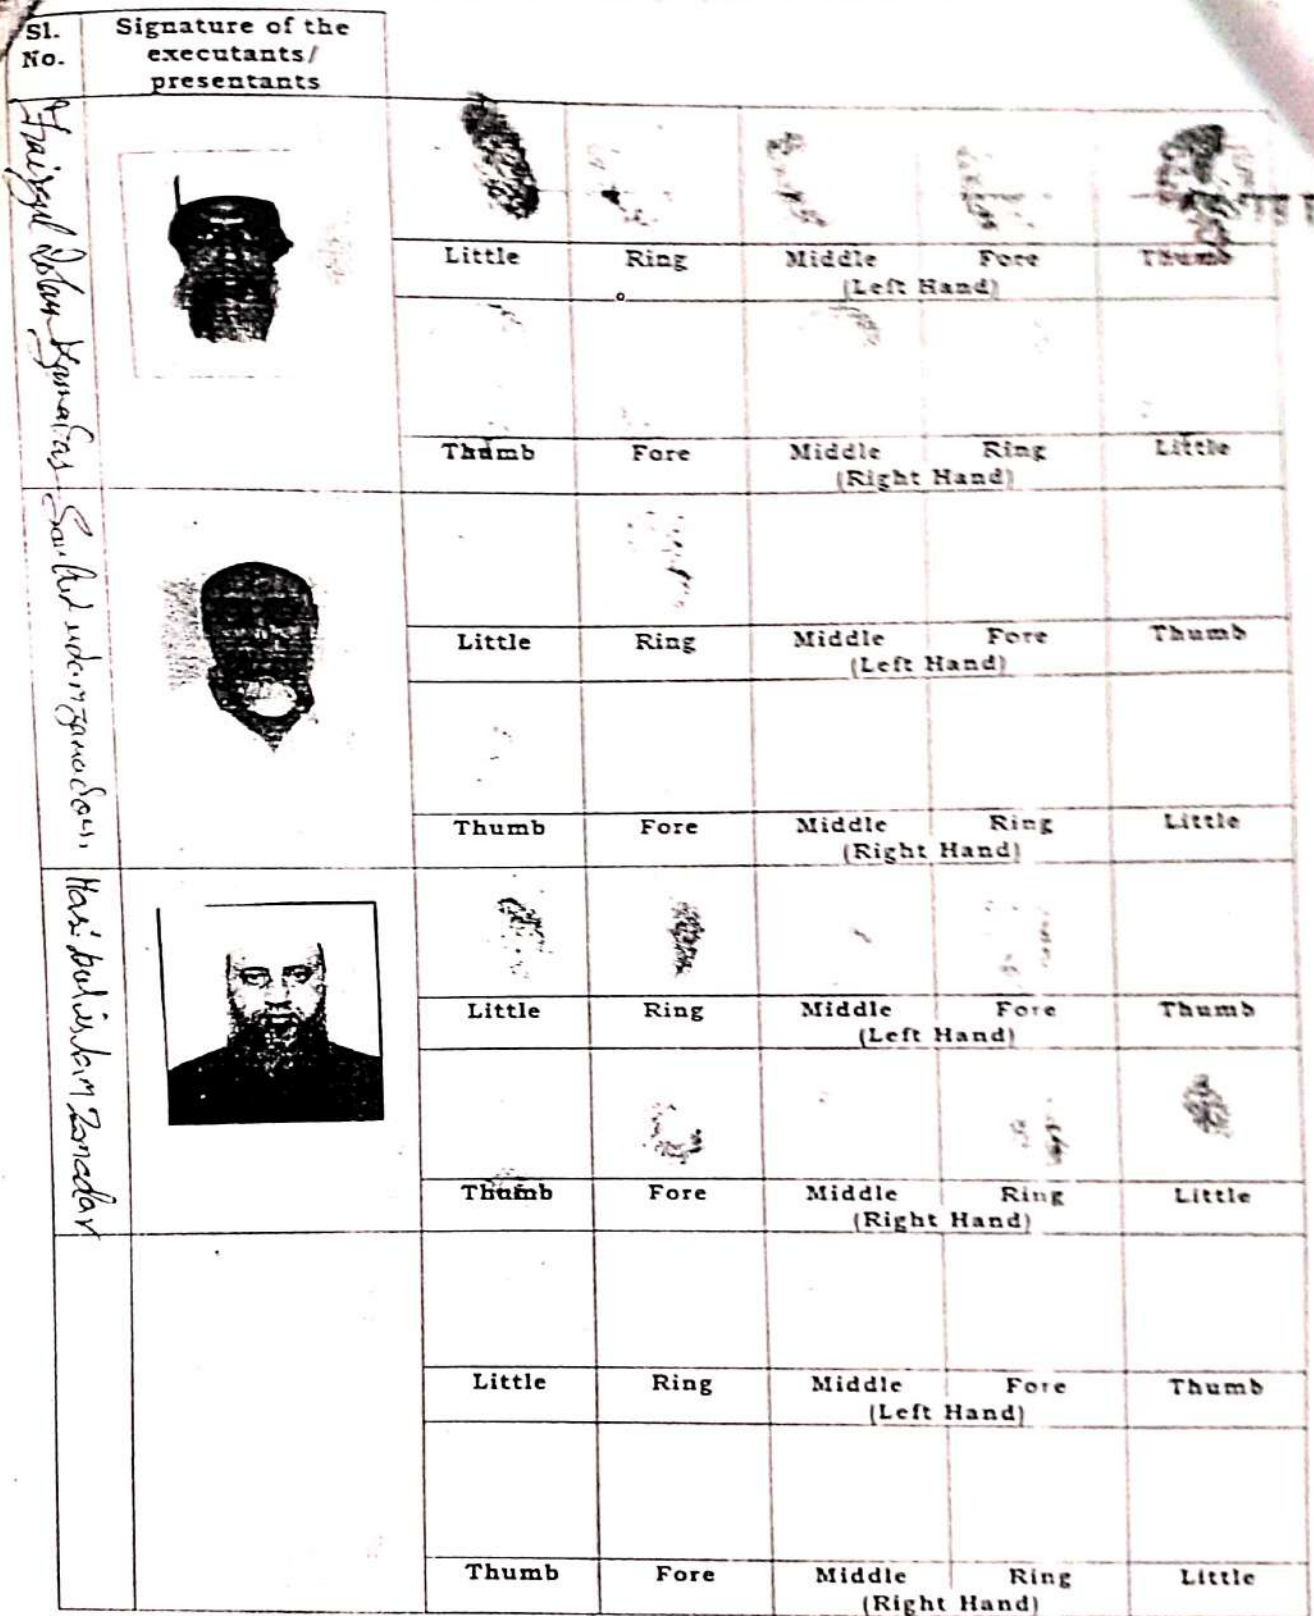 Sl. No.
Signature of the executants/ presentants
Little Ring Middle Fore Thumb
(Left Hand)
Thumb Fore Middle Ring Little
(Right Hand)
Little Ring Middle Fore Thumb
(Left Hand)
Thumb Fore Middle Ring Little
(Right Hand)
Hasibul islam Zamadar
Little Ring Middle Fore Thumb
(Left Hand)
Thumb Fore Middle Ring Little
(Right Hand)
Little Ring Middle Fore Thumb
(Left Hand)
Thumb Fore Middle Ring Little
(Right Hand)